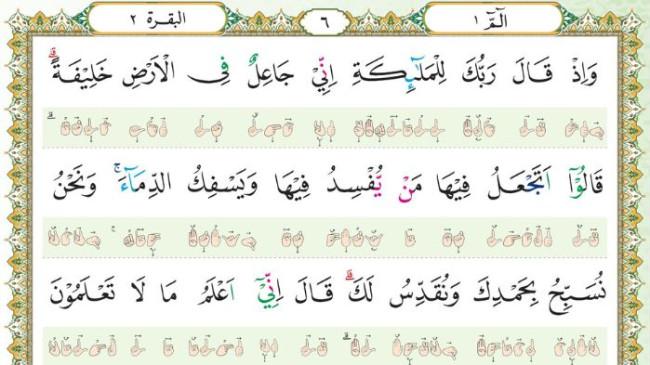 الٓمّٓ ١ ٦ البقرة ٢
وَاِذْ قَالَ رَبُّكَ لِلْمَلٰٓئِكَةِ اِنِّيْ جَاعِلٌ فِى الْاَرْضِ خَلِيْفَةً ۗ
قَالُوْٓا اَتَجْعَلُ فِيْهَا مَنْ يُّفْسِدُ فِيْهَا وَيَسْفِكُ الدِّمَاۤءَۚ وَنَحْنُ
نُسَبِّحُ بِحَمْدِكَ وَنُقَدِّسُ لَكَ ۗ قَالَ اِنِّيْٓ اَعْلَمُ مَا لَا تَعْلَمُوْنَ